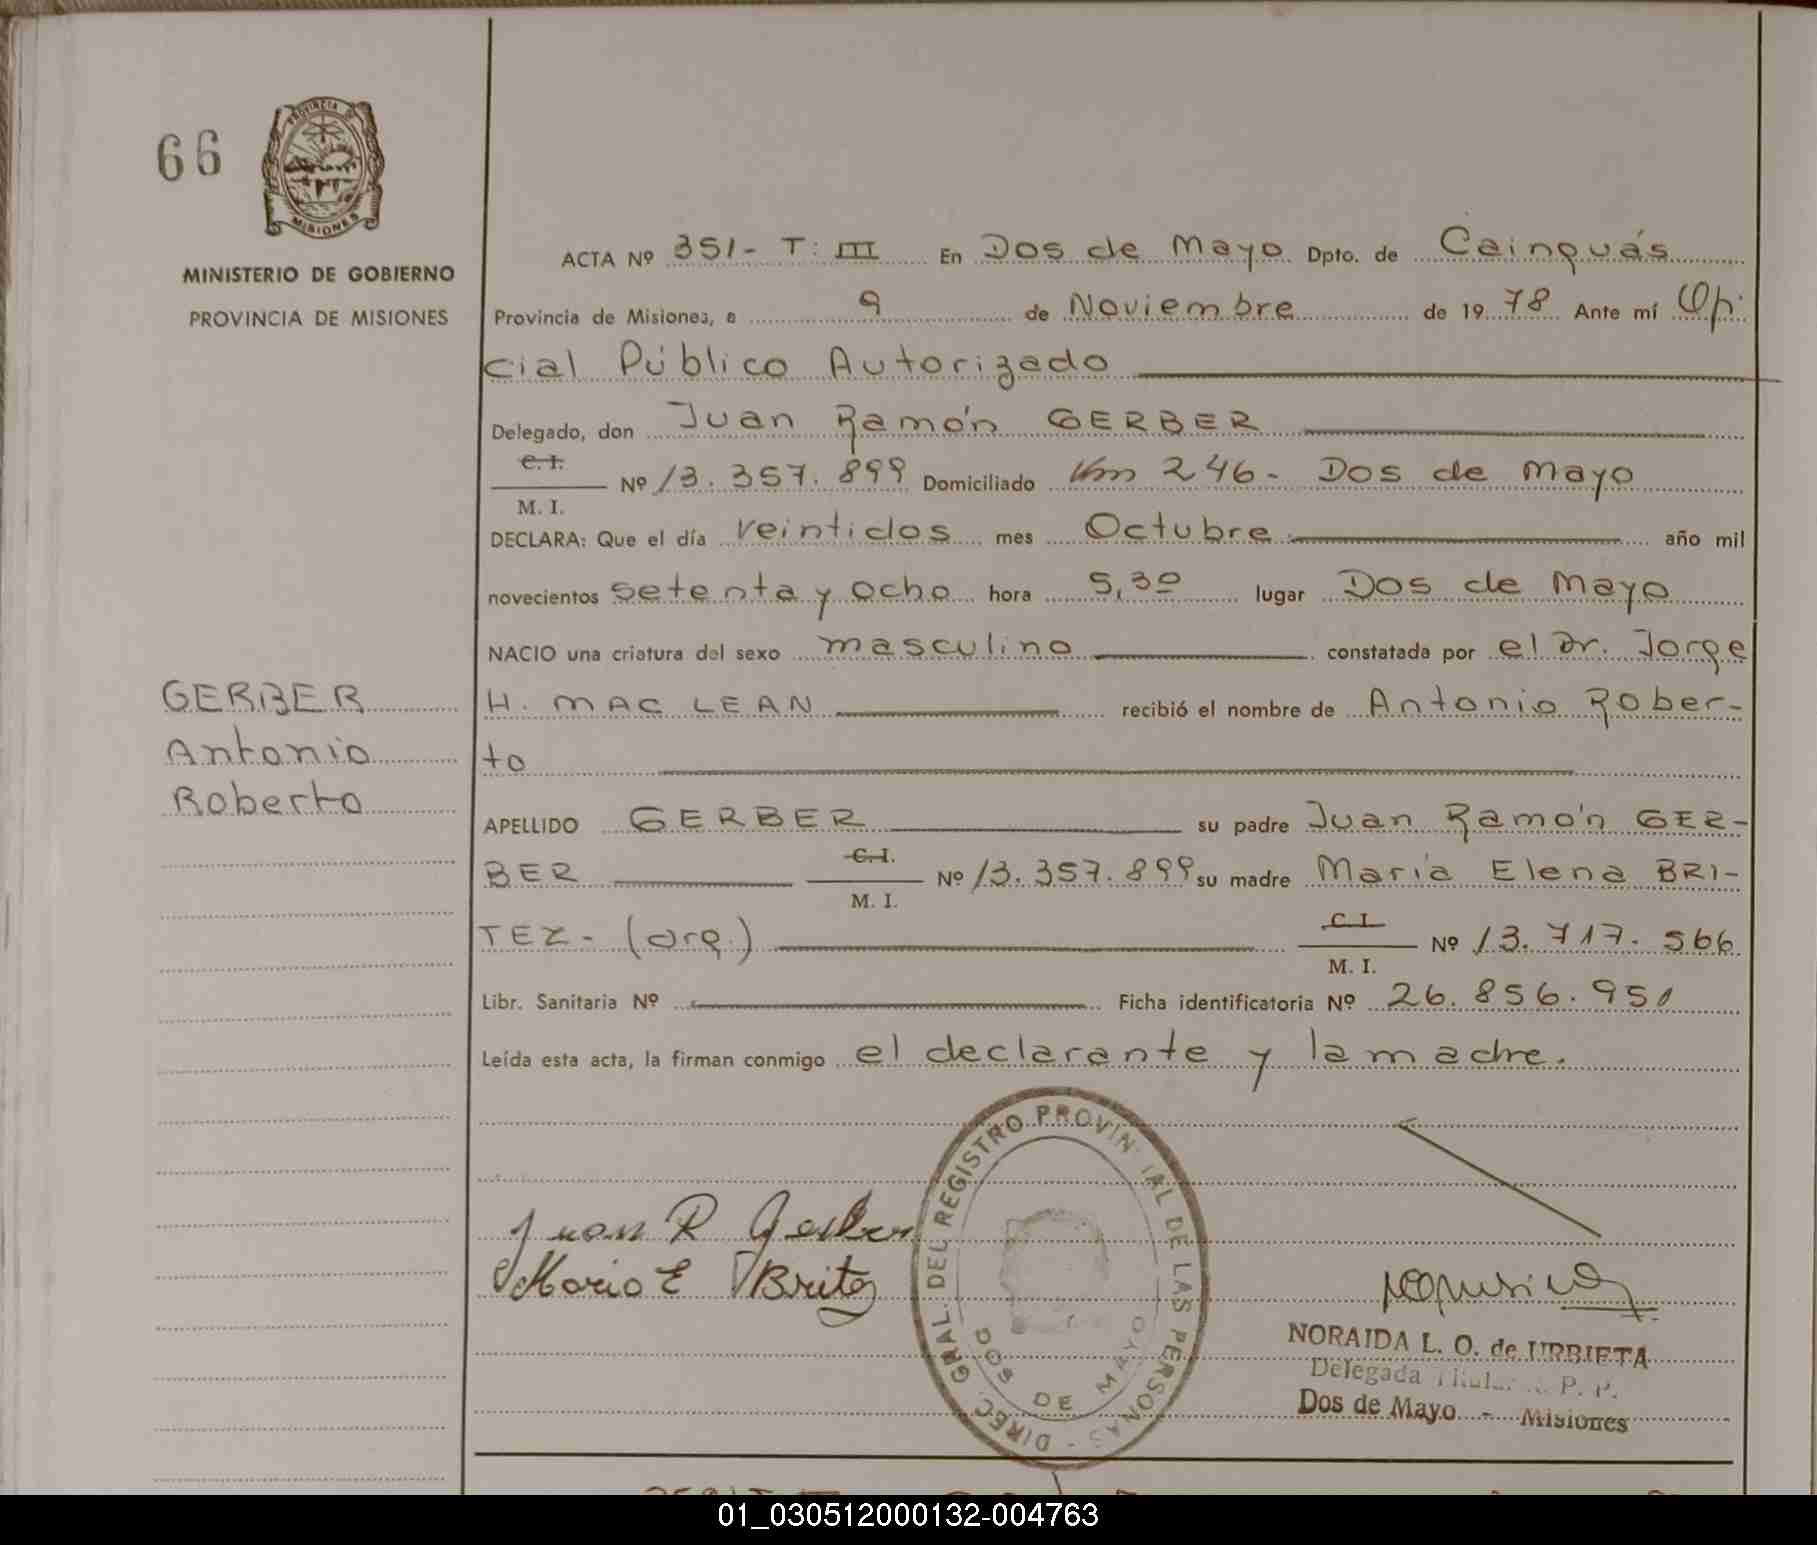 66
PROVINCIA DE
MISIONES
MINISTERIO DE GOBIERNO
PROVINCIA DE MISIONES
ACTA Nº 351- T: III En Dos de Mayo Dpto. de Cainguás
Provincia de Misiones, a 9 de Noviembre de 1978 Ante mí Ofi
cial Público Autorizado
Delegado, don Juan Ramón GERBER
C. I.
M. I.
Nº 13.357.899 Domiciliado Km 246- Dos de Mayo
DECLARA: Que el día veintidos mes Octubre año mil
novecientos setenta y ocho hora 5,30 lugar Dos de Mayo
NACIO una criatura del sexo masculino constatada por el Dr. Jorge
H. MAC LEAN recibió el nombre de Antonio Rober-
to
GERBER
Antonio
Roberto
APELLIDO GERBER su padre Juan Ramón GER-
BER C.I. M. I. Nº 13.357.899 su madre María Elena BRI-
TEZ- (arg.) C.I. M. I. Nº 13.717.566
Libr. Sanitaria Nº Ficha identificatoria Nº 26.856.951
Leída esta acta, la firman conmigo el declarante y la madre.
Juan R Gerber
Maria E Britez
DIREC. GRAL. DEL REGISTRO PROVIN IAL DE LAS PERSONAS -
DOS DE MAYO
NORAIDA L. O. de URBIETA
Delegada Titular P. P.
Dos de Mayo - Misiones
01_030512000132-004763